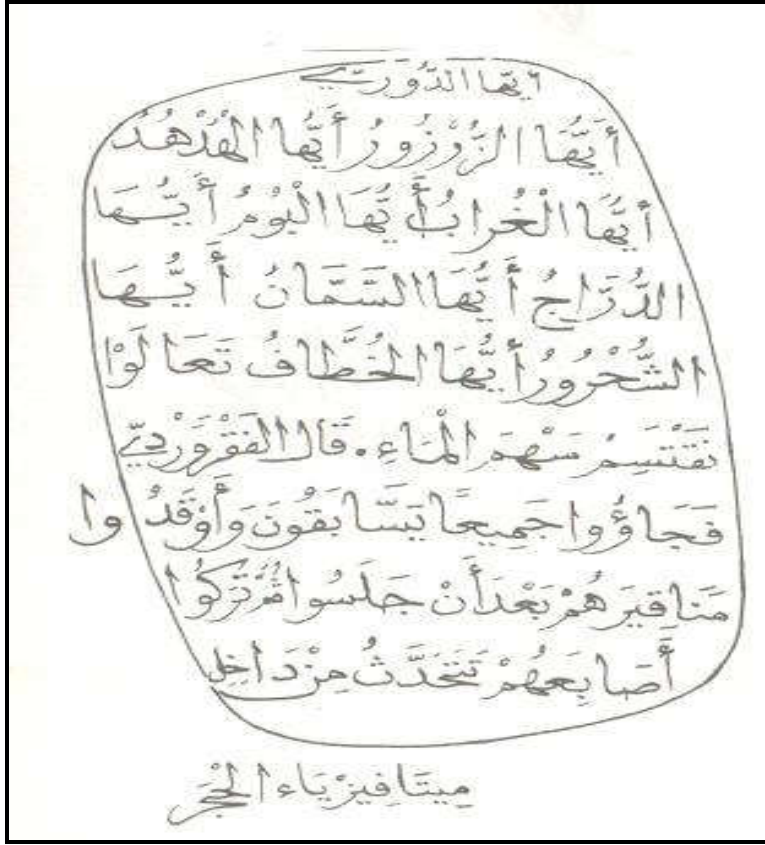 أيّها الدُّوريّ
أَيُّهَا الزُّرْزُورُ أَيُّها الهُدْهُدُ
أَيُّهَا الْغُرابُ أَيُّهَا الْبُومُ أَيُّهَا
الدُّرَّاجُ أَيُّهَا السَّمَّانُ أَيُّهَا
الشُّحْرُورُ أَيُّهَا الخُطَّافُ تَعَالَوْا
نَقْتَسِمْ سَهْمَ الْمَاءِ. قَالَ الفَقْرَوَرْدِيّ
فَجَاؤُوا جَمِيعًا يَسَّابَقُونَ وَأَوْقَدُوا
مَنَاقِيرَهُمْ بَعْدَ أَنْ جَلَسُوا ثُمَّ تَرَكُوا
أَصَابِعَهُمْ تَتَحَدَّثُ مِنْ دَاخِلِ
مِيتَافِيزْيَاء الحَجَر